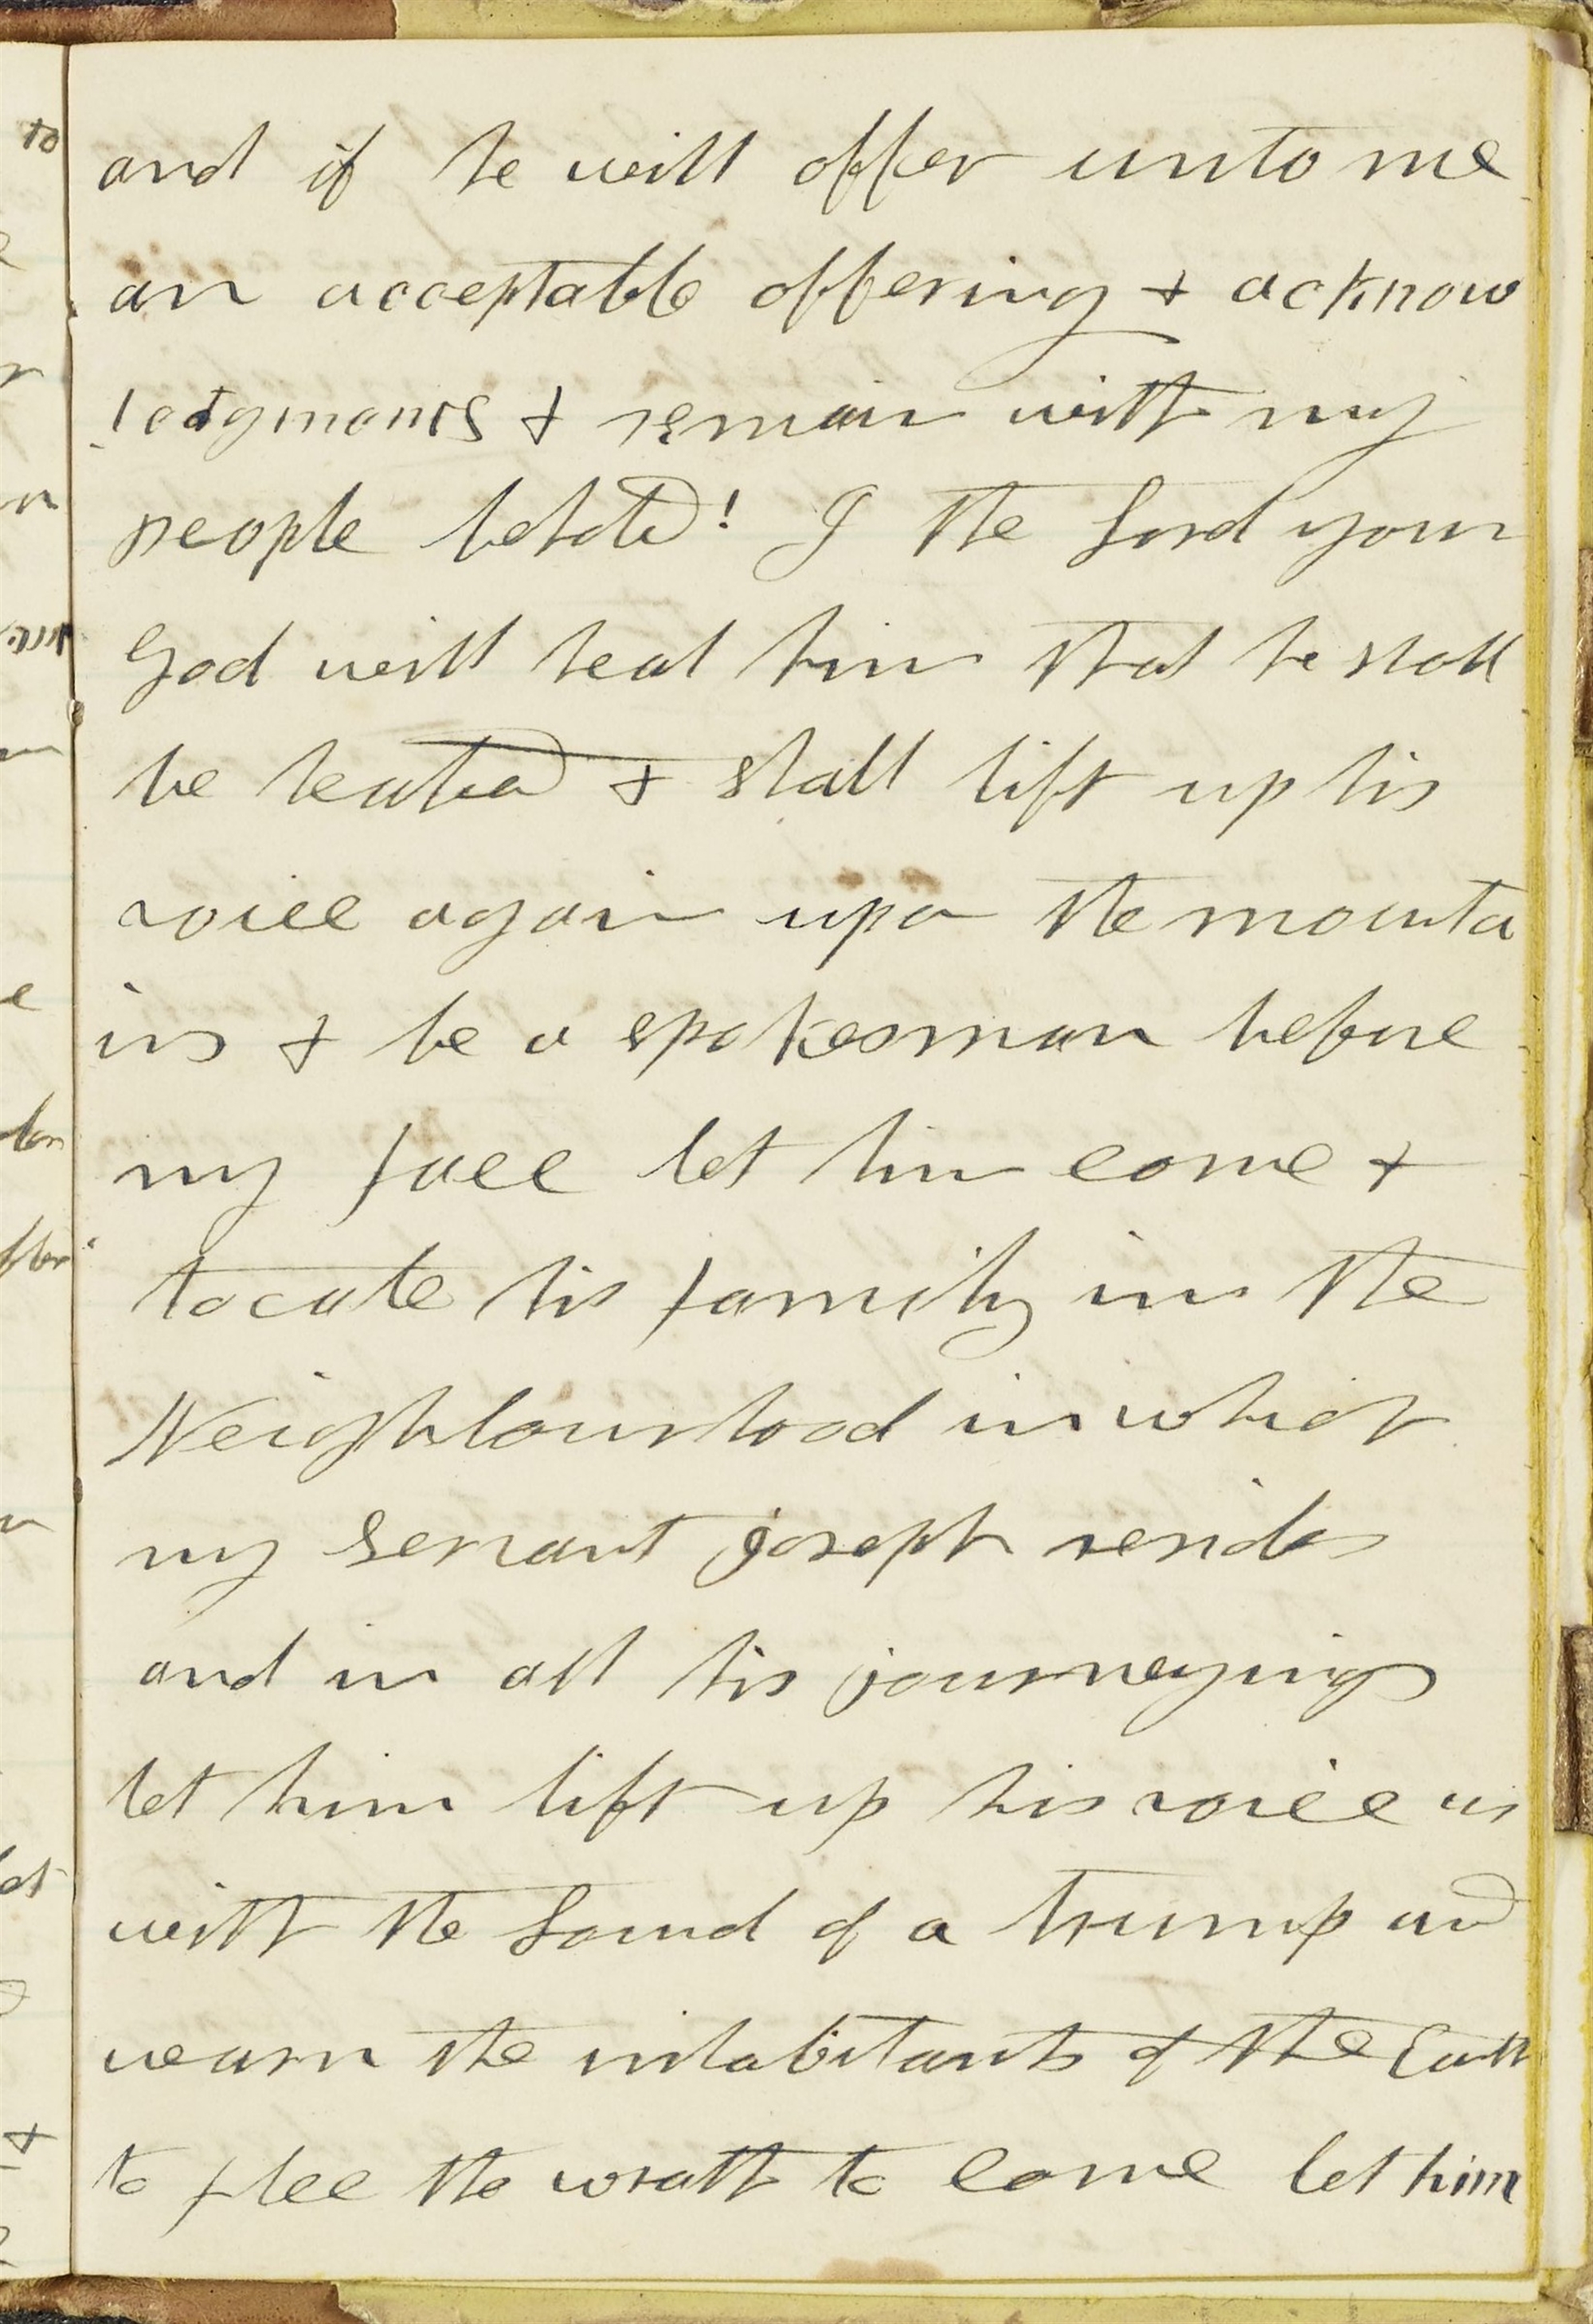 and if he will offer unto me
an acceptable offering & acknow
ledgments & remain with my
people behold! I the Lord your
God will heal him that he shall
be healed & shall lift up his
voice again upon the mounta
ins & be a spokesman before
my face let him come &
locate his family in the
Neighbourhood in which
my Servant joseph resides
and in all his journeyings
let him lift up his voice as
with the Sound of a trump and
wearn the inhabitants of the Earth
to flee the wrath to come let him